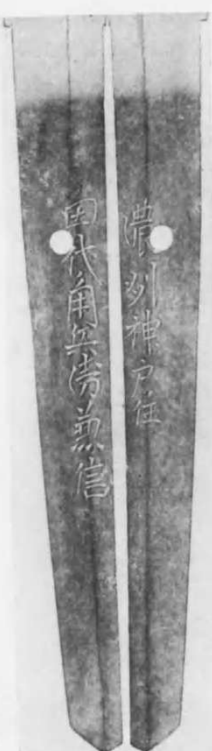 濃州神戸住
田代角兵衛兼信